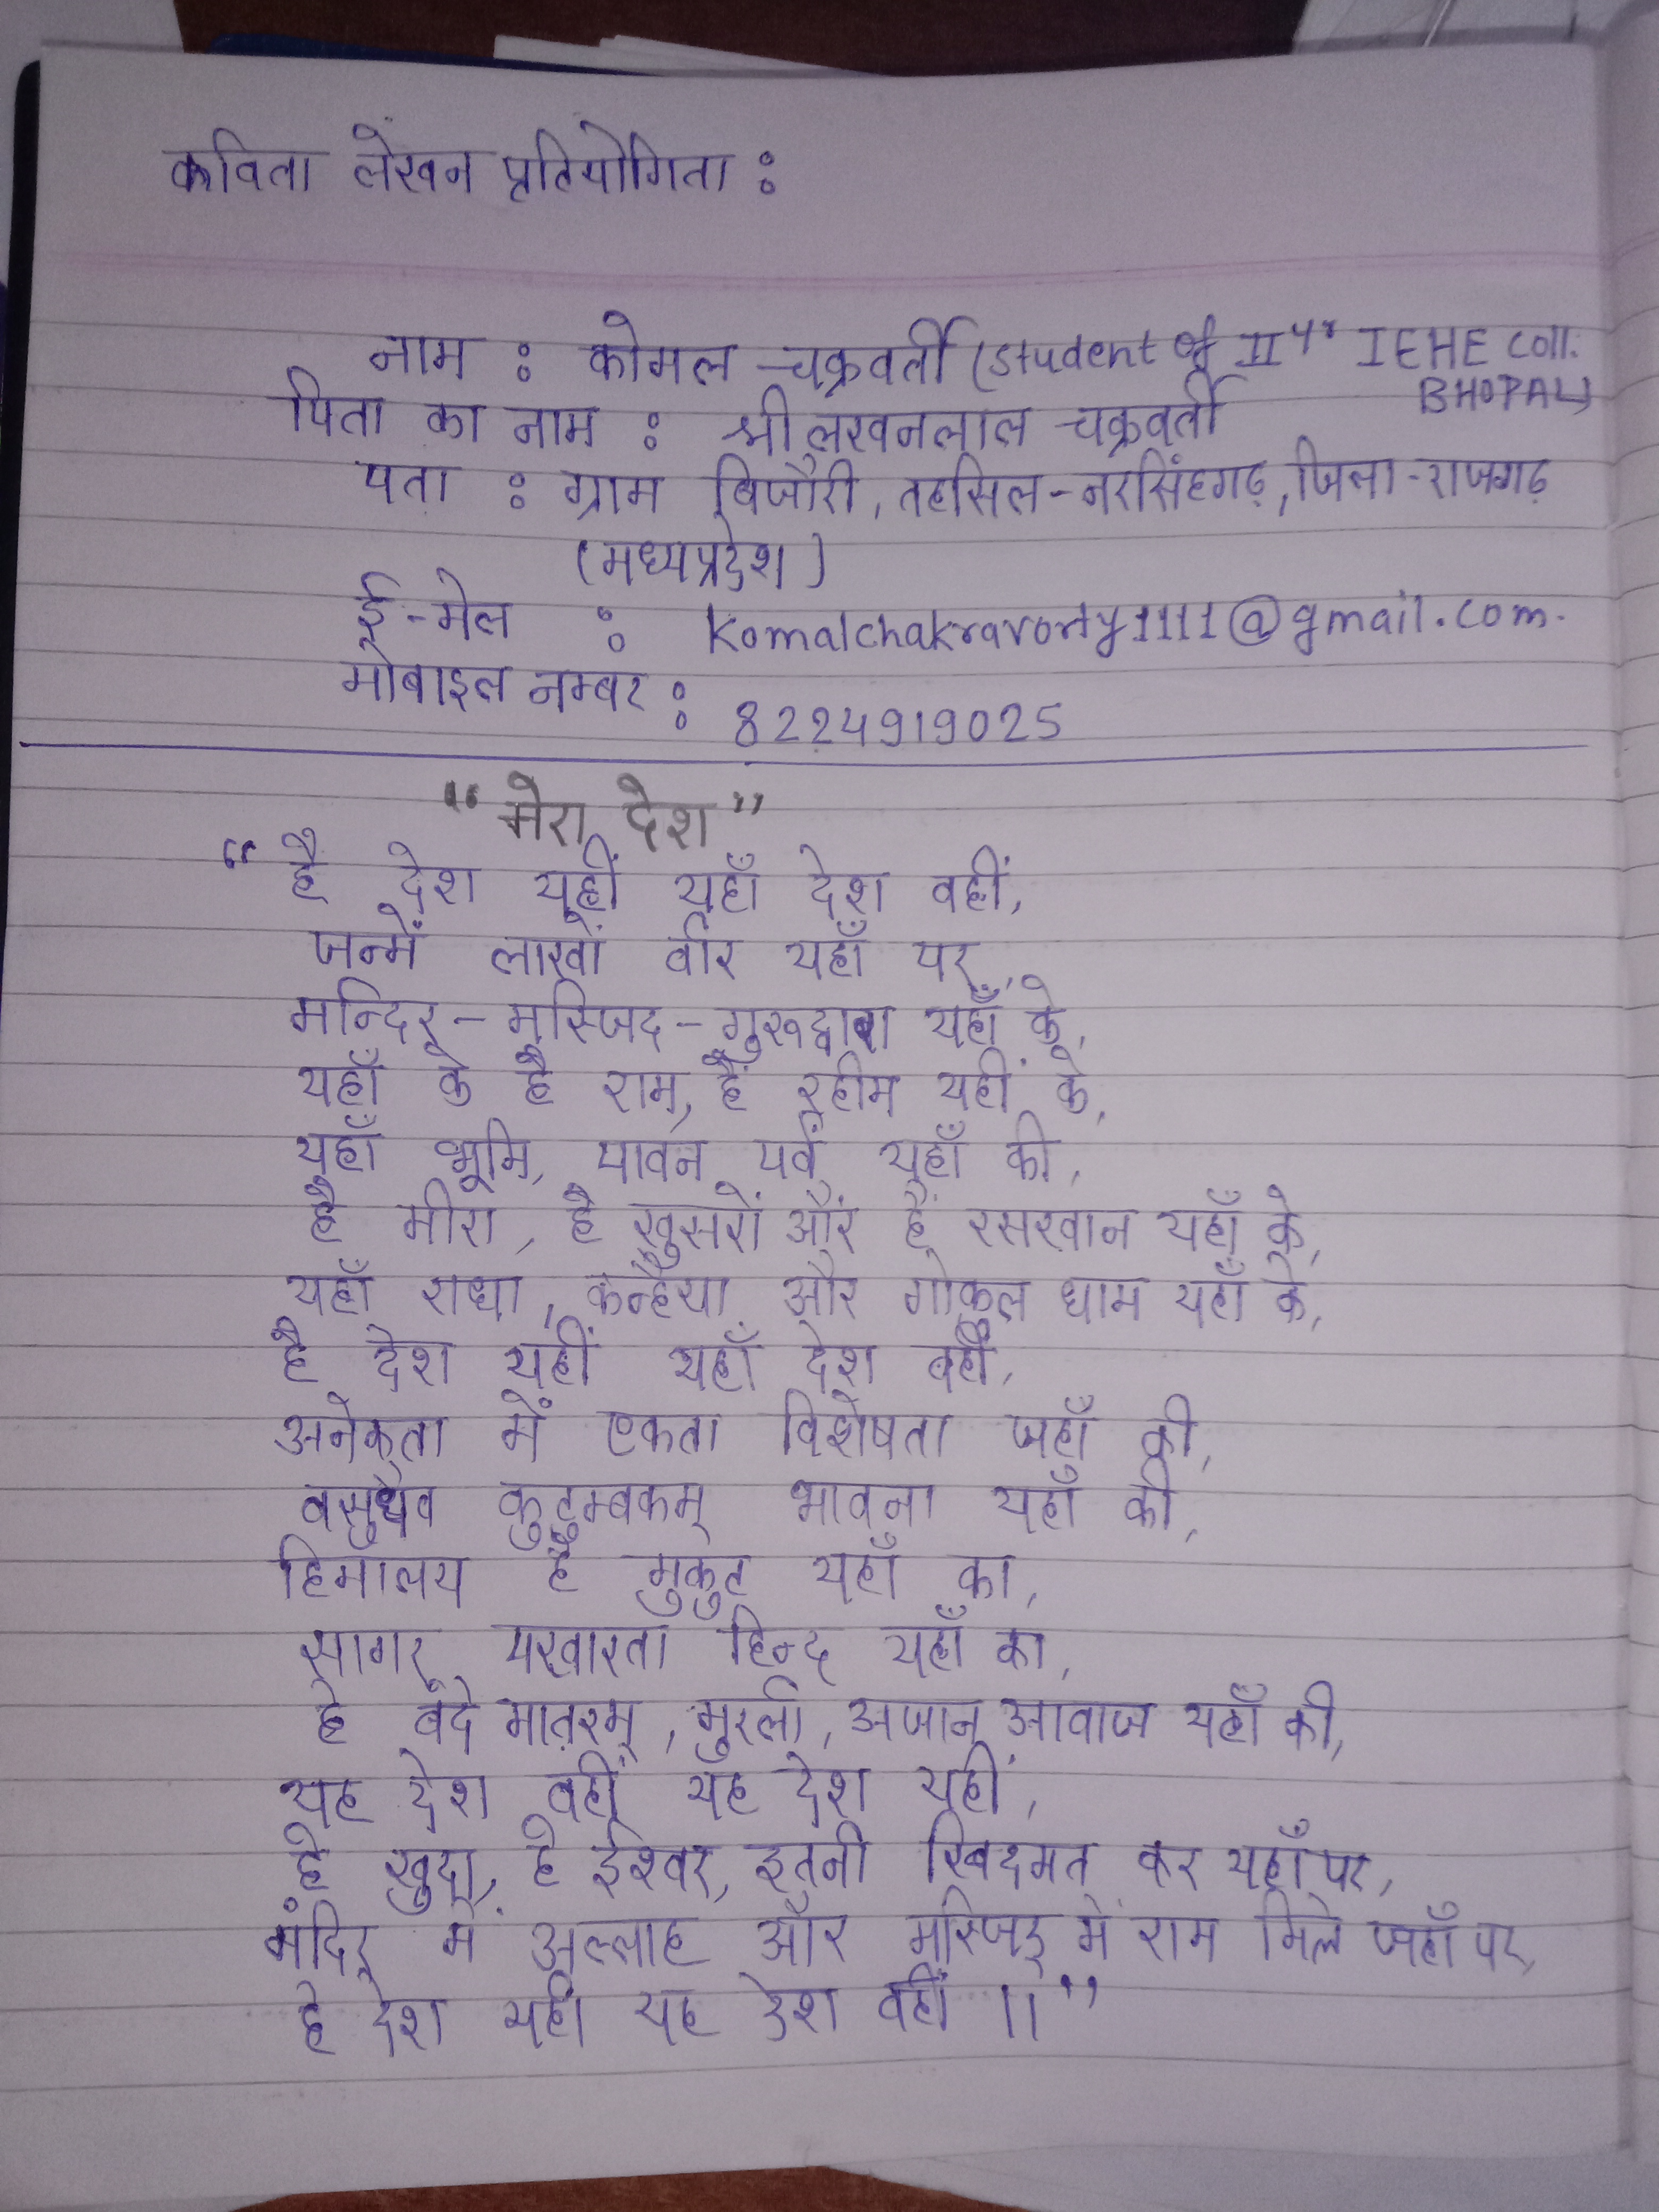 कविता लेखन प्रतियोगिता :
नाम : कोमल चक्रवर्ती (student of II yr IEHE coll.
BHOPAL)
पिता का नाम : श्री लखनलाल चक्रवर्ती
पता : ग्राम बिजौरी, तहसिल-नरसिंहगढ़, जिला-राजगढ़
(मध्यप्रदेश)
ई-मेल : komalchakravorty1111@gmail.com.
मोबाइल नम्बर : 8224919025
“मेरा देश”
“है देश यहीं यहाँ देश वहीं,
जन्में लाखों वीर यहाँ पर,
मन्दिर-मस्जिद-गुरूद्वारा यहाँ के,
यहाँ के है राम, हैं रहीम यहीं के,
यहाँ भूमि, पावन पर्व यहाँ की,
है मीरा, है खुसरों और हैं रसखान यहाँ के,
यहाँ राधा, कन्हैया और गोकुल धाम यहाँ के,
है देश यहीं यहाँ देश वहीं,
अनेकता में एकता विशेषता जहाँ की,
वसुधैव कुटुम्बकम् भावना यहाँ की,
हिमालय है मुकुट यहाँ का,
सागर पखारता हिन्द यहाँ का,
है वंदे मातरम्, मुरली, अजान आवाज यहाँ की,
यह देश वहीं यह देश यहीं,
हे खुदा, हे ईश्वर, इतनी खिदमत कर यहाँ पर,
मंदिर में अल्लाह और मस्जिद में राम मिले जहाँ पर,
है देश यहीं यह देश वहीं ।।”